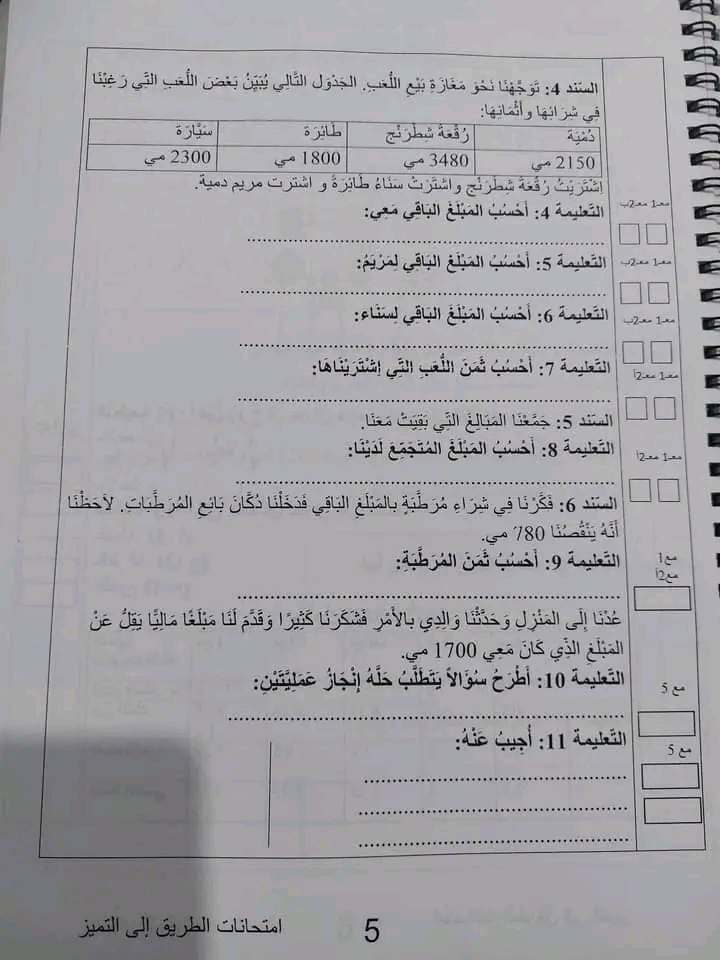 السّند 4: تَوَجَّهْنَا نَحْوَ مَغَازَةِ بَيْعِ اللُّعَبِ. الجَدْوَل التَّالِي يُبَيِّنُ بَعْضَ اللُّعَبِ التِّي رَغِبْنَا
فِي شِرَائِهَا وأَثْمَانِهَا:
دُمْيَة رُقْعَةُ شِطْرَنْج طَائِرَة سَيَّارَة
2150 مي 3480 مي 1800 مي 2300 مي
اِشْتَرَيْتُ رُقْعَةَ شِطْرَنْج واشْتَرَتْ سَنَاءُ طَائِرَةً و اشترت مريم دمية.
التّعليمة 4: أَحْسُبُ المَبْلَغَ البَاقِي مَعِي:
معـ1 معـ2ب
التّعليمة 5: أَحْسُبُ المَبْلَغَ البَاقِي لِمَرْيَمُ:
معـ1 معـ2ب
التّعليمة 6: أَحْسُبُ المَبْلَغَ البَاقِي لِسَنَاء:
معـ1 معـ2ب
التّعليمة 7: أَحْسُبُ ثَمَنَ اللُّعَبِ التِّي اِشْتَرَيْنَاهَا:
معـ1 معـ2أ
السّند 5: جَمَّعْنَا المَبَالِغَ التِّي بَقِيَتْ مَعَنَا.
التّعليمة 8: أَحْسُبُ المَبْلَغَ المُتَجَمِّعَ لَدَيْنَا:
معـ1 معـ2أ
السّند 6: فَكَّرْنَا فِي شِرَاءِ مُرَطِّبَةٍ بالمَبْلَغِ البَاقِي فَدَخَلْنَا دُكَّانَ بَائِعِ المُرَطِّبَاتِ. لاَحَظْنَا
أَنَّهُ يَنْقُصُنَا 780 مي.
التّعليمة 9: أَحْسُبُ ثَمَنَ المُرَطِّبَةِ:
مع1
مع2أ
عُدْنَا إلَى المَنْزِلِ وَحَدَّثْنَا وَالِدِي بالأَمْرِ فَشَكَرَنَا كَثِيرًا وَقَدَّمَ لَنَا مَبْلَغًا مَالِيًّا يَقِلُّ عَنْ
المَبْلَغِ الذِّي كَانَ مَعِي 1700 مي.
التّعليمة 10: أَطْرَحُ سُؤَالاً يَتَطَلَّبُ حَلُّهُ إِنْجَازُ عَمَلِيَّتَيْنِ:
مع 5
التّعليمة 11: أُجِيبُ عَنْهُ:
مع 5
5 امتحانات الطريق إلى التميز